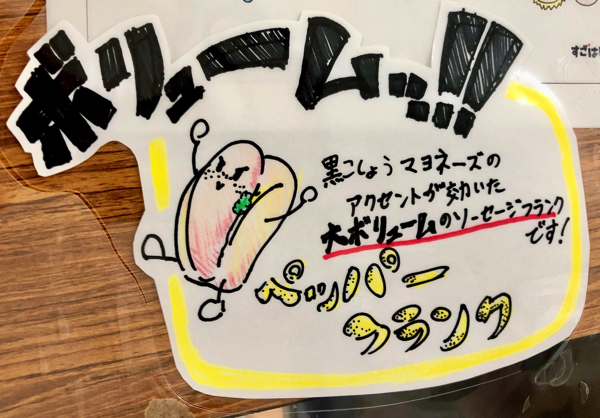 ボリュームッ!!
黒こしょうマヨネーズの
アクセントが効いた
大ボリュームのソーセージフランク
です!
ペッパー
フランク